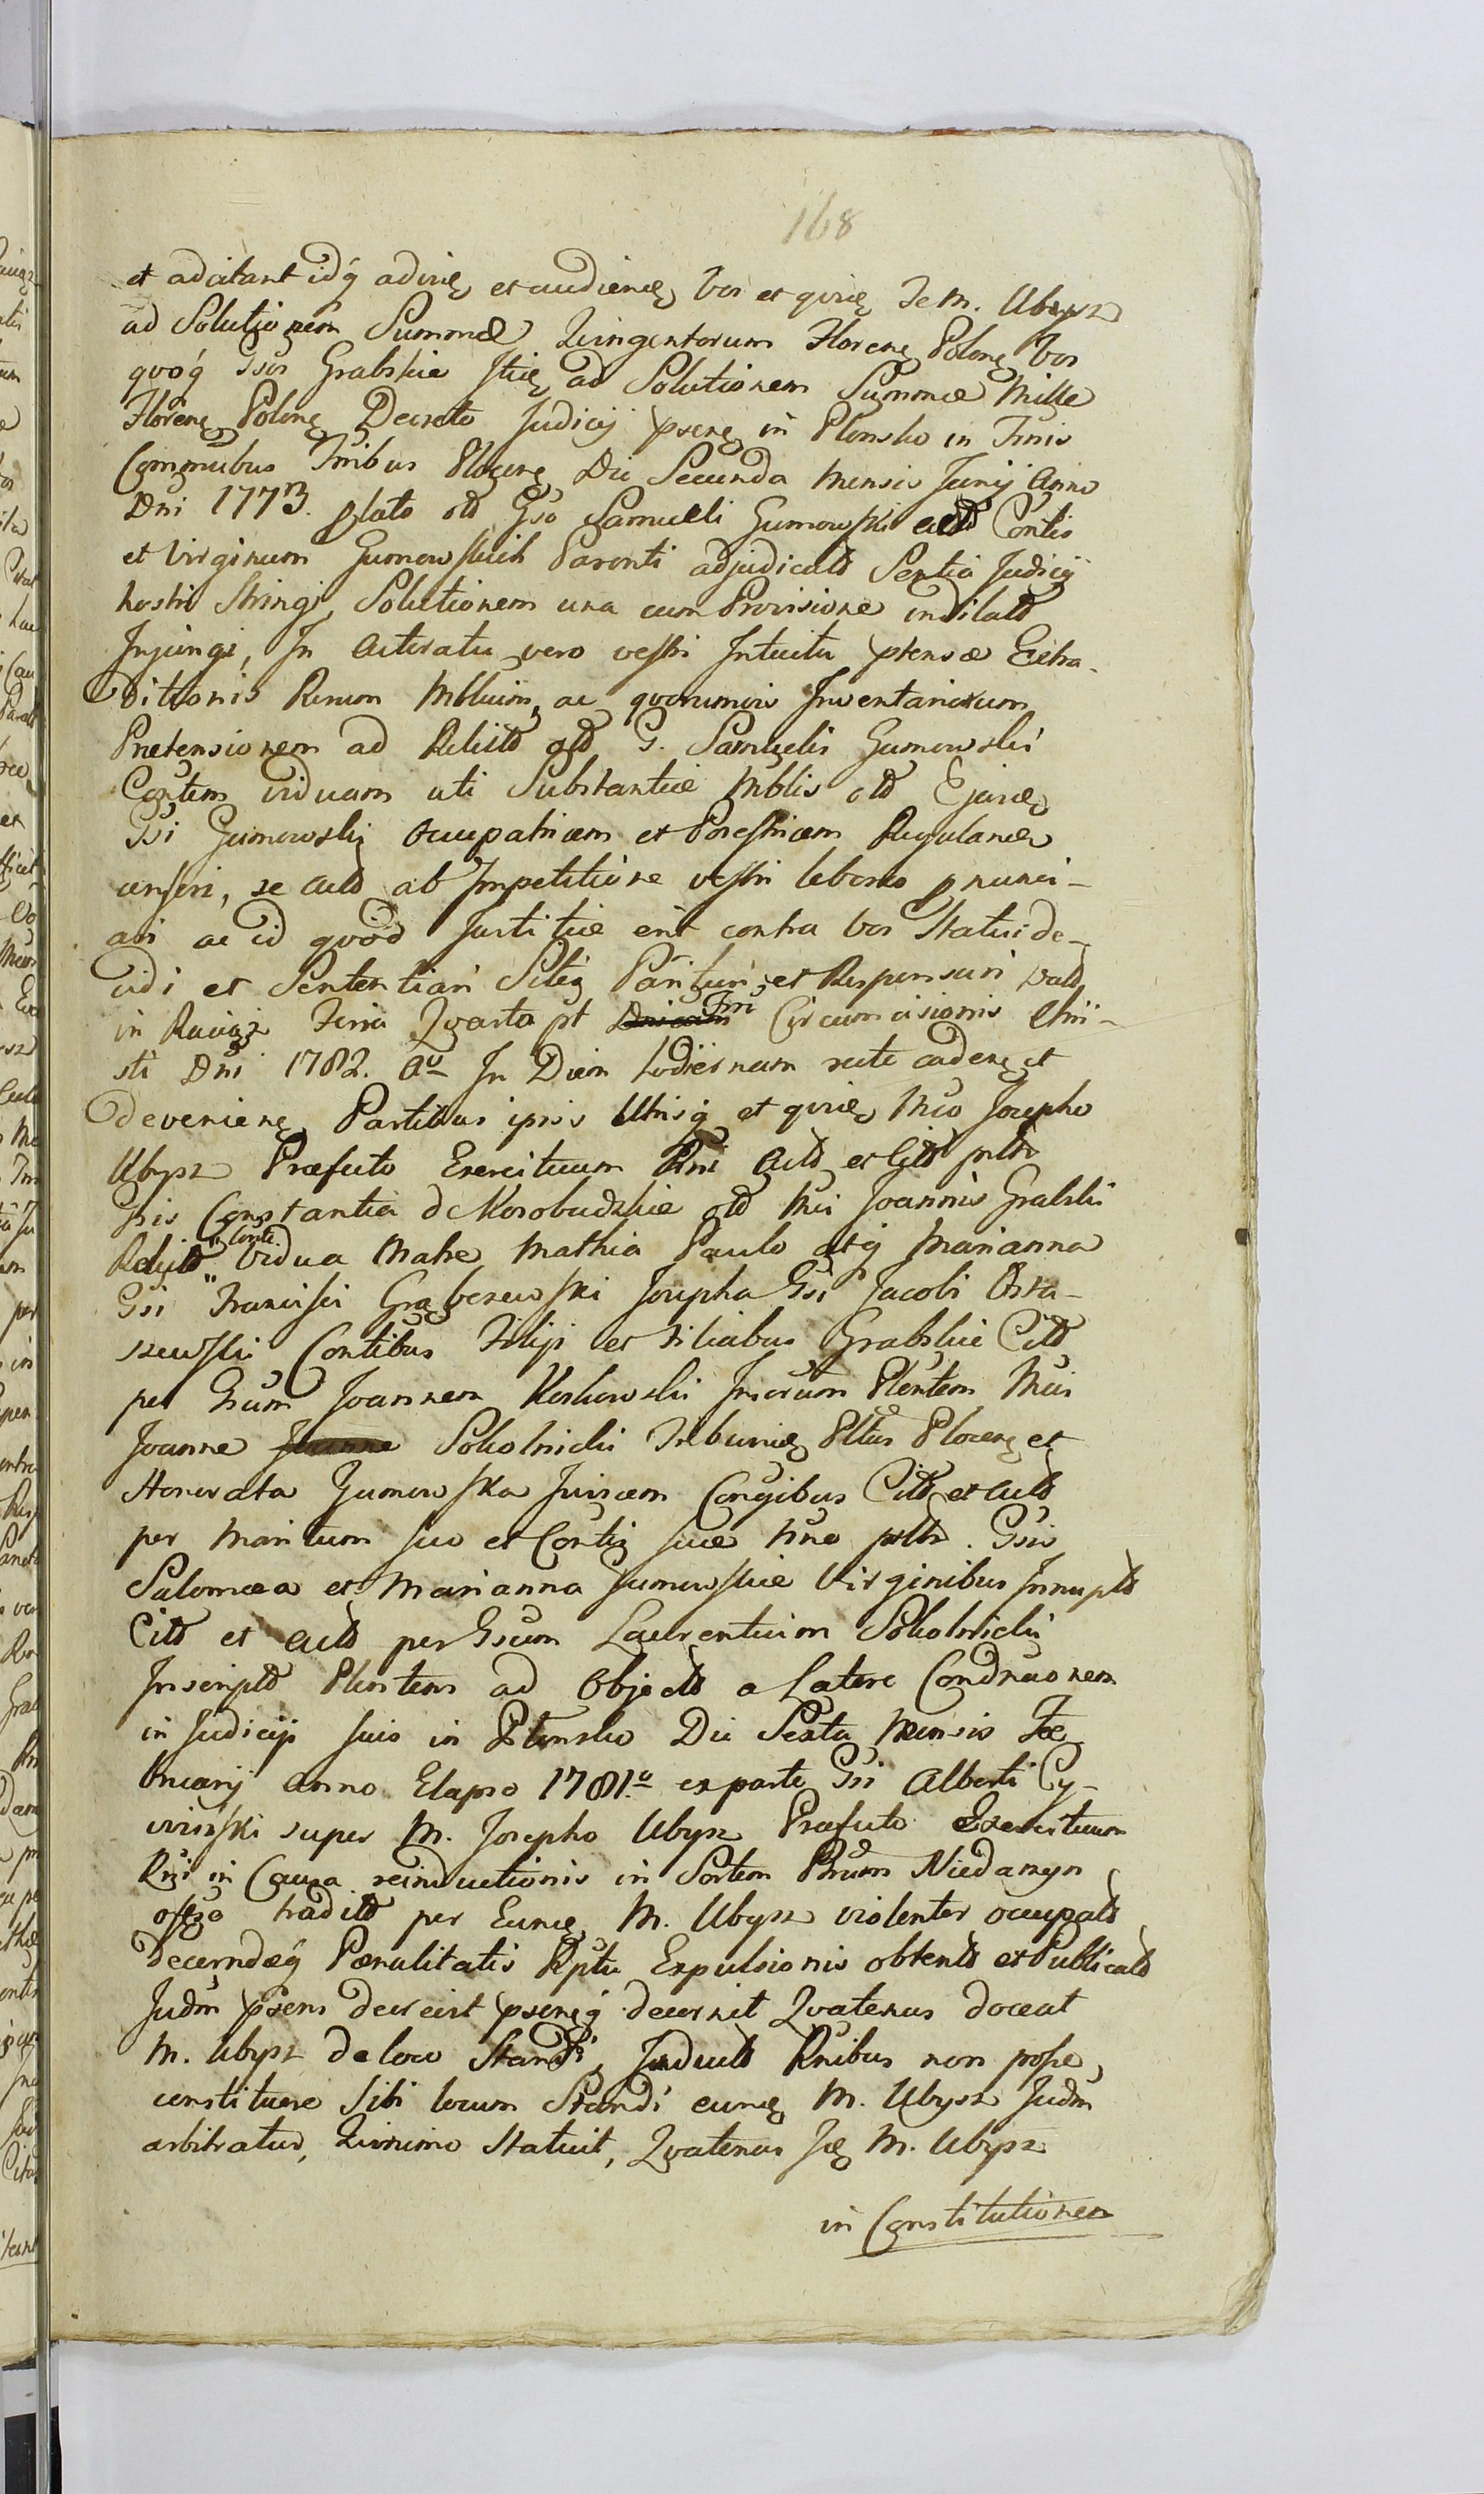 168
et adcitant idq adirę et audienę Vos et qirię Te M. Ubysz
ad Solutionem Summæ Quingentorum Florenę Polonę Vos
quoq Gsos Grabskie Stię ad Solutionem Summæ Mille
Florenę Polonę Decreto Judicij psenę in Plonsko in Tnis
Commubus Tnibus Plocenę Die Secunda Mensis Junij Anno
Dni 1773. plato old Gso Samueli Gumowski actd Contis
et Virginum Gumowskich Parenti adjudicatd Sentia Judicij
nostri Stringi, Solutionem una cum Provisione indilatd
Injungi, In Actoratu vero vestri Intuitu ptensæ Extra-
ditionis Rerum Mbluim, ac quorumvis Inventariorum
Pretensionem ad Relictd old G. Samuelis Gumowski
Contem viduam uti Substantiæ Mblis old Ejusdę
Gsi Gumowski Occupatricem et Possricem Regulandę
censeri, se actd ab Impetitione vestri liberos pnunci-
ari ac id quod Justitiæ erit contra Vos Statui de-
cidi et Sententiari Sitię Parituri et Responsuri Datd
in Raciąż Feria Quarta pt Dnicam Fri Circumcisionis Chri-
sti Dni 1782. Ao In Diem hodiernam recte cadenę et
devenienę Partibus ipsis Utrisq et qirię Mco Josepho
Ubysz Præfecto Exercituum Rni Actd et Citd pnltr
Gsis Constantia de Korobudzkie old Mci Joannis Grabski
Relictd Conte Vidua Matre Mathia Paulo atq Marianna
Gsi Francisci Grąbczewski Josepha Gsi Jacobi Osta-
szewski Contibus Filijs et Filiabus Grabskie Citd
per Gsum Joannem Koskowski Juratum Plentem Mcis
Joanne Joanne Sokolnicki Tribunię Pltus Plocenę et
Honorata Gumowska Juricem Conjugibus Citd et Actd
per Maritum suo et Contis suæ nne pnltr. Gsis
Salomæa et Marianna Gumowskie Virginibus Innuptd
Citd et Actd per Gsum Laurentium Sokolnicki
Inscriptd Plentem ad Objectd a Latere Condnaonem
in Judicijs suis in Plonsko Die Sexta Mensis Fe-
bruarij Anno Elapso 1781.o ex parte Gsi Alberti Cy-
wiński super M. Josepho Ubysz Præfecto Exercituum
Rni in Causa reinductionis in Sortem Bnrum Niedarzyn
ofso traditd per Eundę M. Ubysz violenter occupatd
decerndæq Pœnalitatis Rptu Expulsionis obtentd et Publicatd
Judm psens decreirt psensq decernit Quatenus doceat
M. Ubysz de loco Standi, Inductd Rnibus non posse
constituere Sibi locum Standi eundę M. Ubysz Judm
arbitratur, Quinimo Statuit, Quatenus Idę M. Ubysz
in Constitutionem